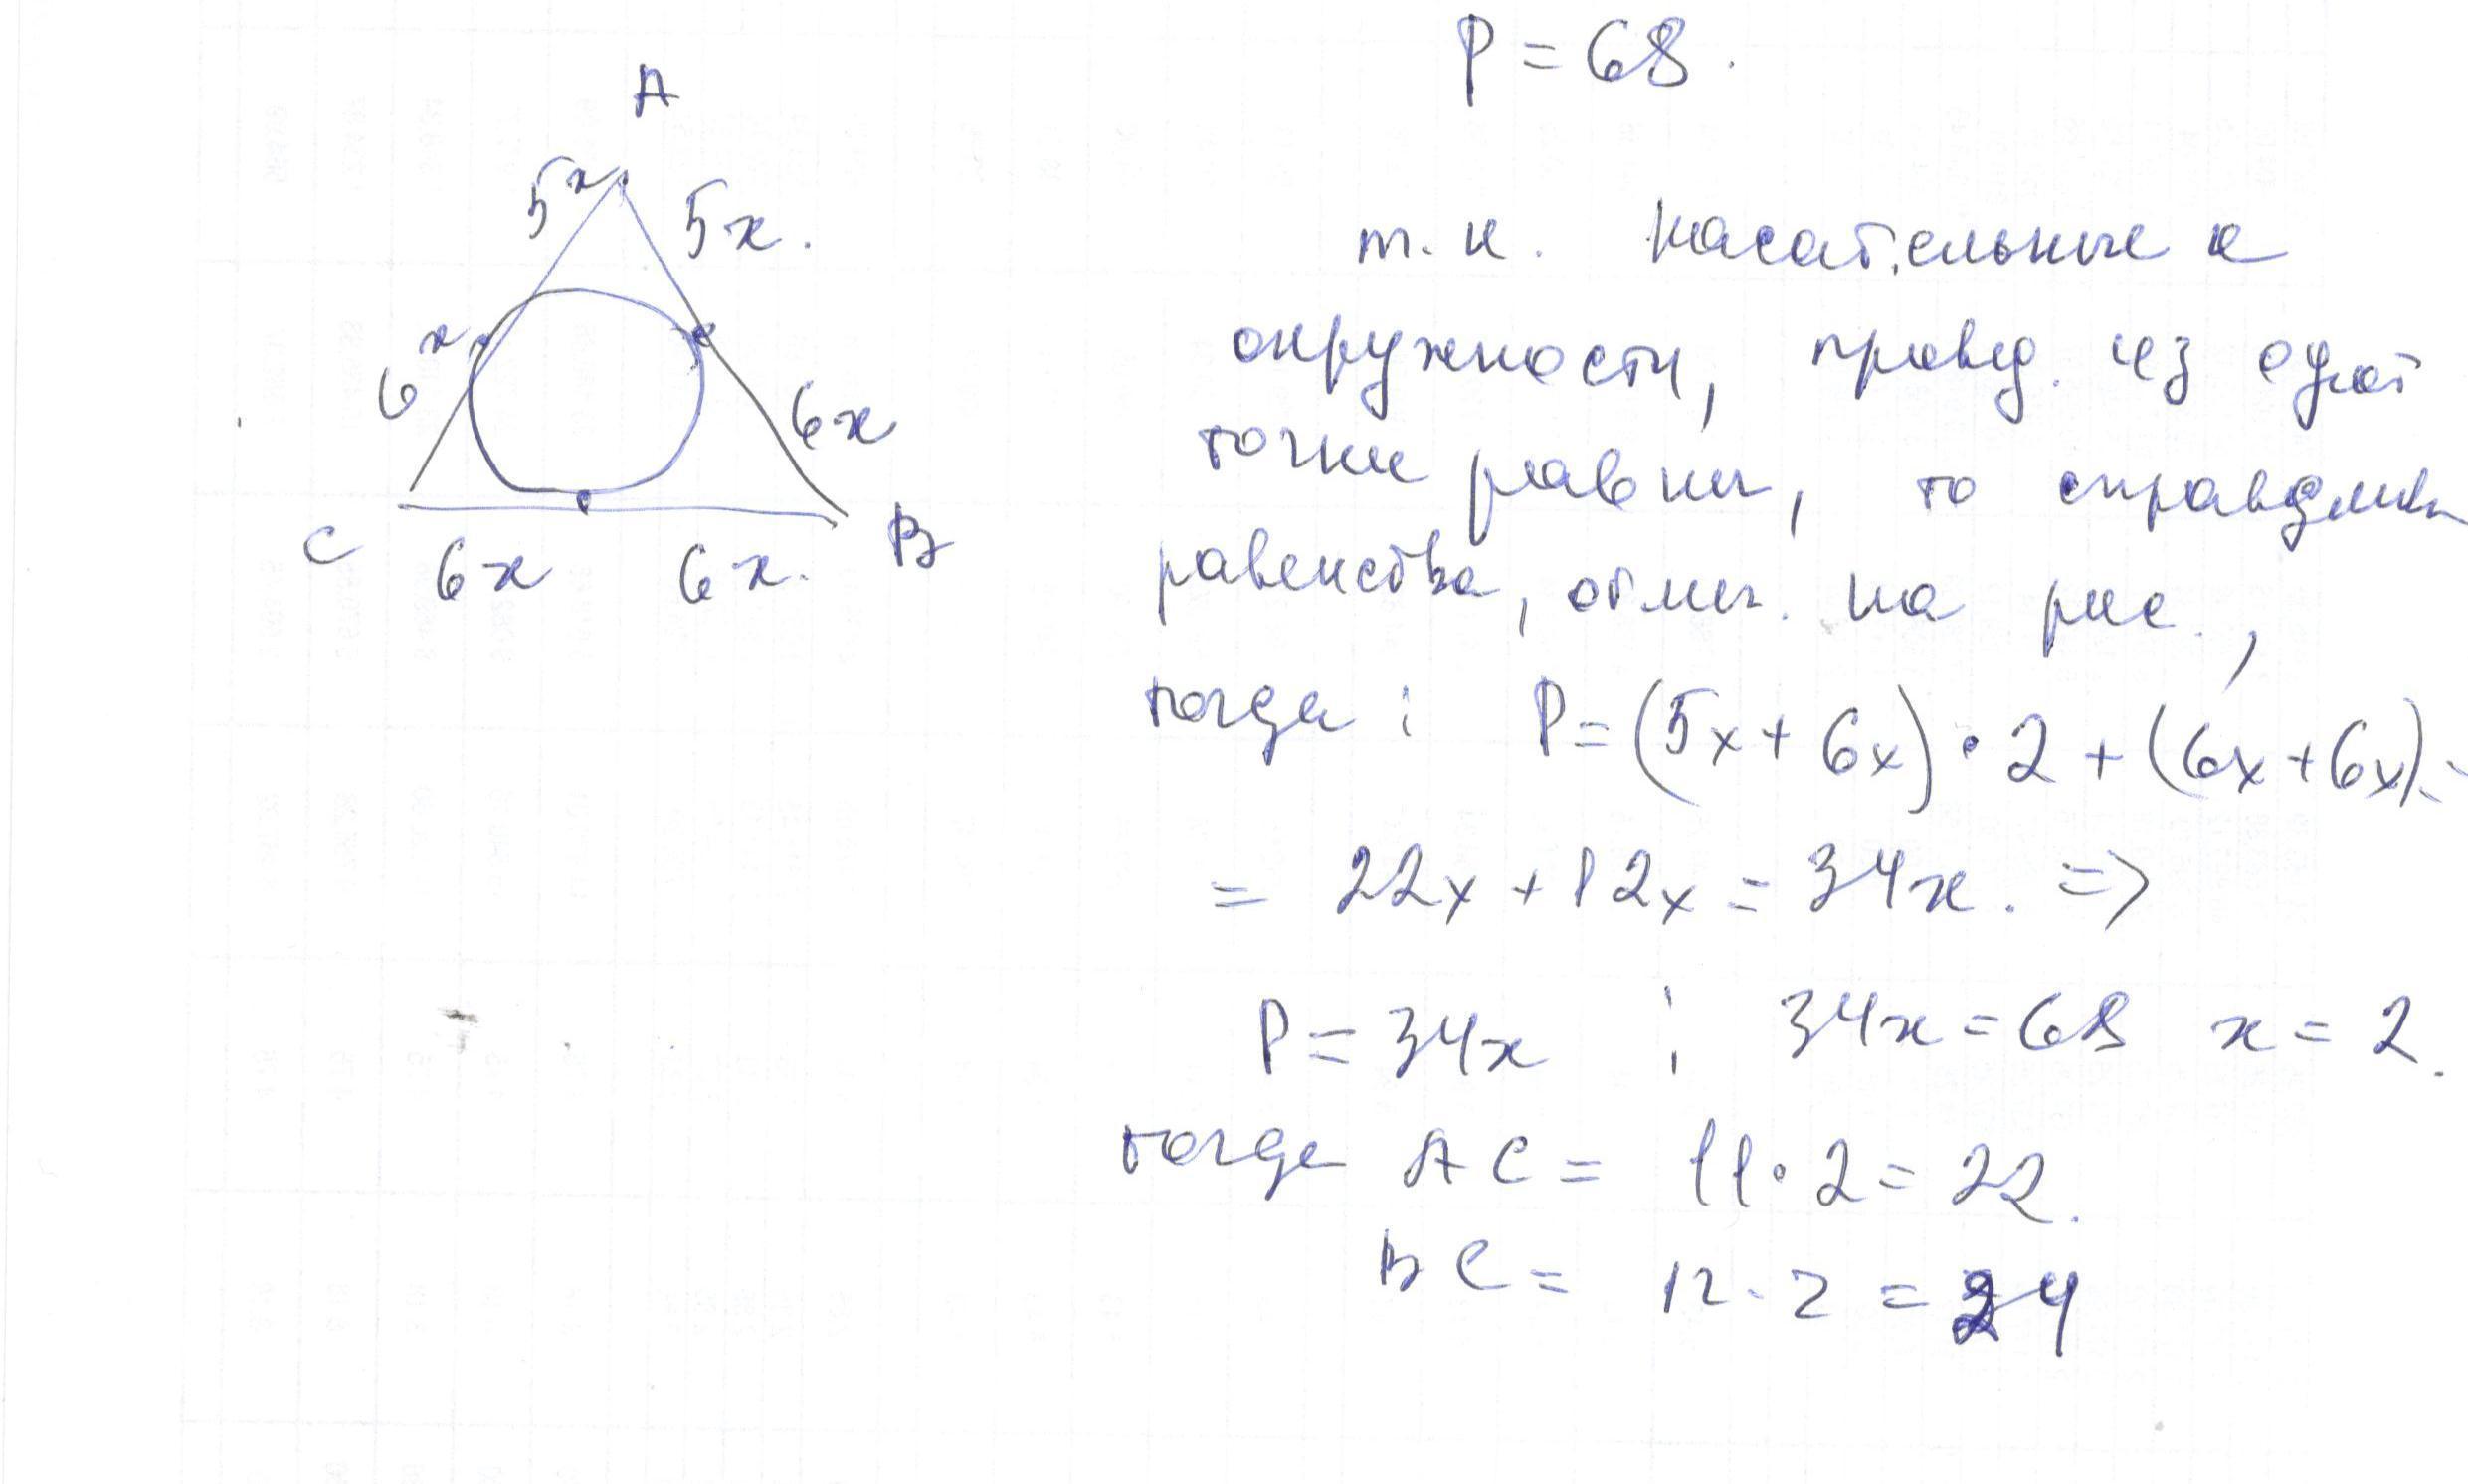 P = 68.
A
5x
5x.
x
6
6x
C
B
6x
6x.
т.к. касательные к
окружности, провед. из одной
точки равны, то справедливы
равенства, отмеч. на рис.,
тогда: P = (5x + 6x) · 2 + (6x + 6x) =
= 22x + 12x = 34x. =>
P = 34x ; 34x = 68 x = 2.
тогда AC = 11 · 2 = 22.
BC = 12 · 2 = 24